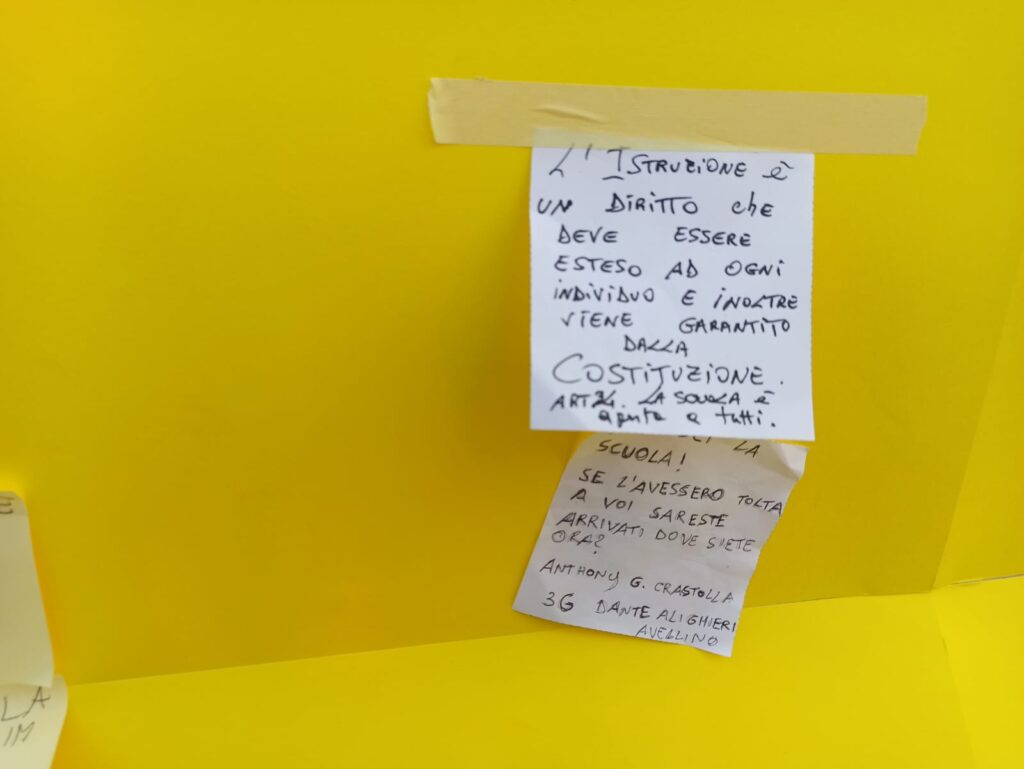 L'ISTRUZIONE è
UN DIRITTO che
DEVE ESSERE
ESTESO AD OGNI
INDIVIDUO E INOLTRE
VIENE GARANTITO
DALLA
COSTITUZIONE.
ART 34. LA SCUOLA È
aperta a tutti.
LA
SCUOLA!
SE L'AVESSERO TOLTA
A VOI SARESTE
ARRIVATI DOVE SIETE
ORA?
ANTHONY G. CRASTOLLA
3G DANTE ALIGHIERI
AVELLINO
LA
IM